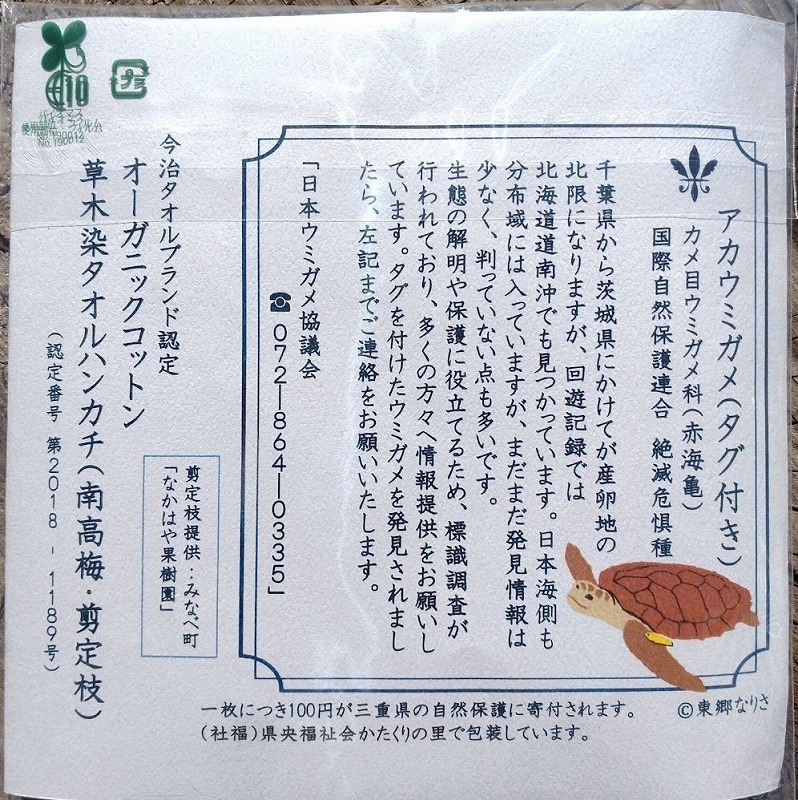 アカウミガメ(タグ付き)
カメ目ウミガメ科(赤海亀)
国際自然保護連合 絶滅危惧種
千葉県から茨城県にかけてが産卵地の
北限になりますが、回遊記録では
北海道道南沖でも見つかっています。日本海側も
分布域には入っていますが、まだまだ発見情報は
少なく、判っていない点も多いです。
生態の解明や保護に役立てるため、標識調査が
行われており、多くの方々へ情報提供をお願いし
ています。タグを付けたウミガメを発見されまし
たら、左記までご連絡をお願いいたします。
「日本ウミガメ協議会
☎072-864-0335」
今治タオルブランド認定
オーガニックコットン
草木染タオルハンカチ(南高梅・剪定枝)
(認定番号 第2018-1189号)
剪定枝提供：みなべ町
「なかはや果樹園」
©東郷なりさ
一枚につき100円が三重県の自然保護に寄付されます。
(社福)県央福祉会かたくりの里で包装しています。
プラ
10
バイオマス
No.190012